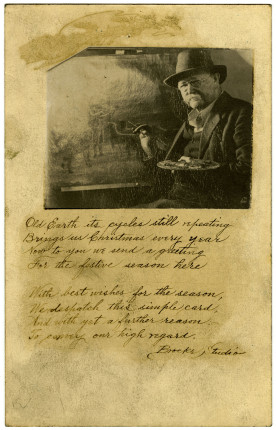 Old Earth its cycles still repeating
Brings us Christmas every year
Now to you we send a greeting
For the festive season here
With best wishes for the season,
We despatch this simple card,
And with yet a further reason
To convey our high regard.
Brooks Studio